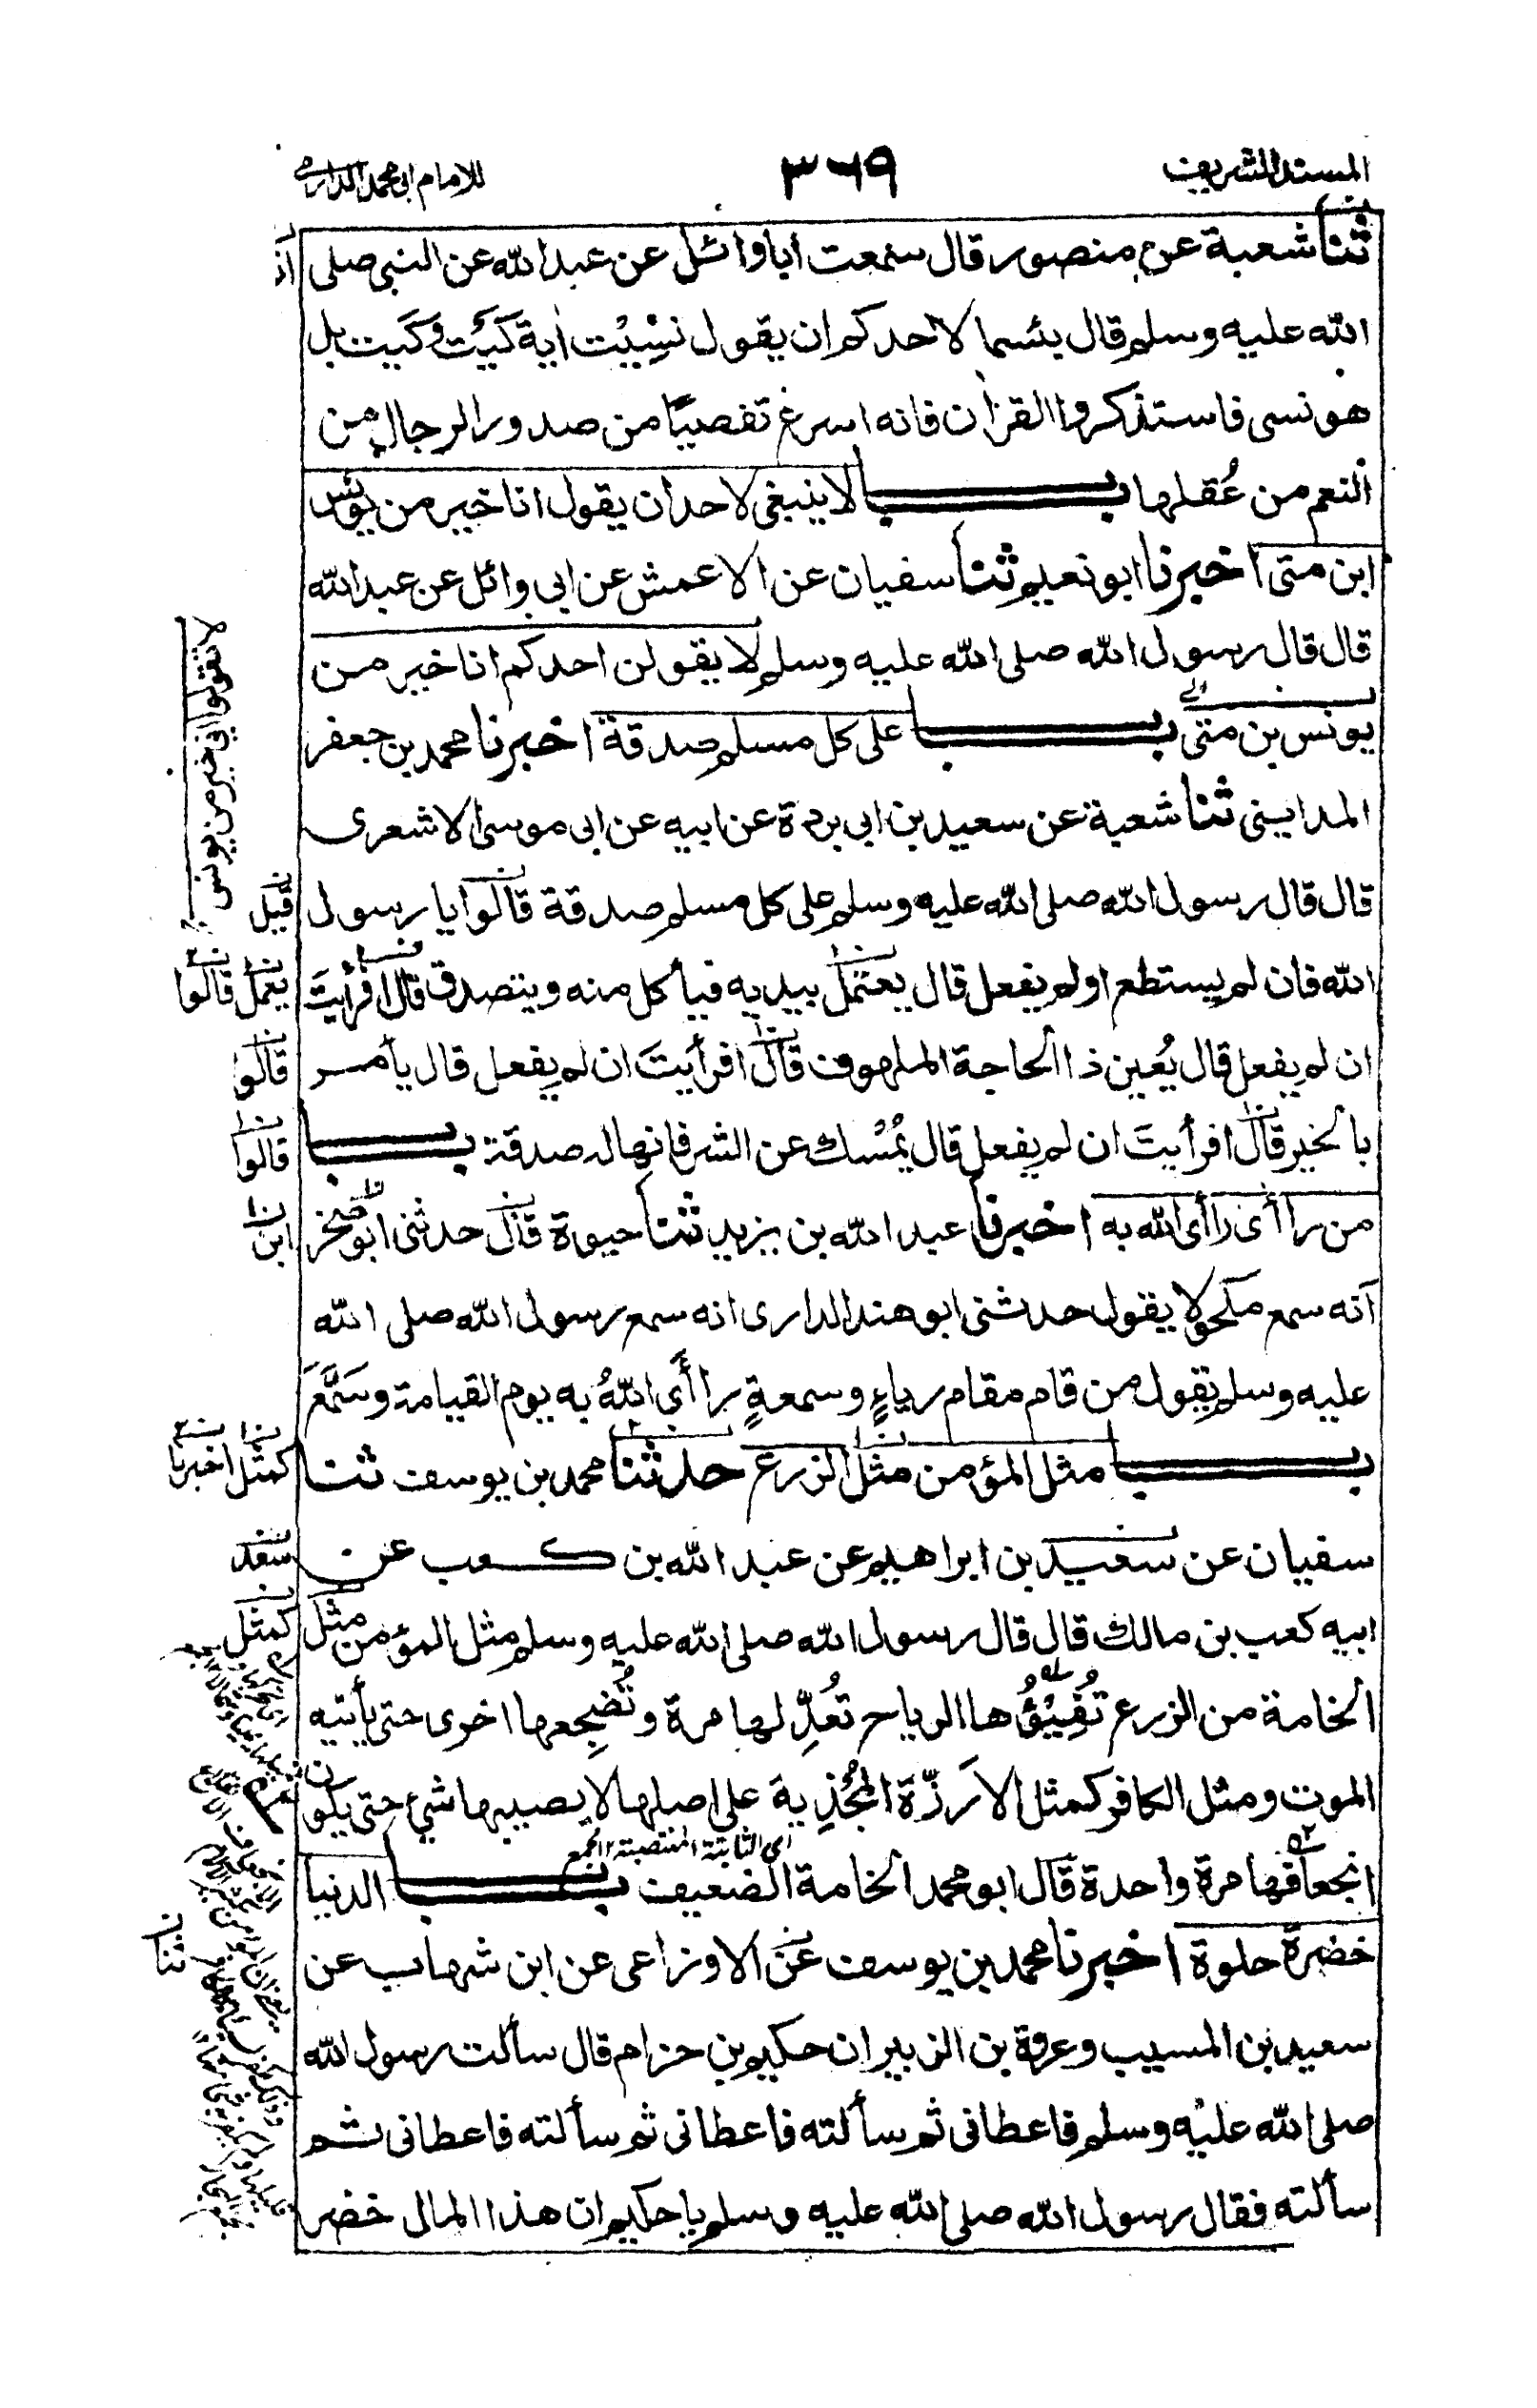 المسند الشريف
٣٦٩
للامام ابى محمد الدارمى
ثنا شعبة عن منصور قال سمعت ابا وائل عن عبد الله عن النبى صلى
الله عليه وسلم قال بئسما لاحدكم ان يقول نَسِيْت اٰية كَيْتَ وَكَيت بل
هو نسى فاستذكروا القرآن فانه اسرع تفصيًا من صدور الرجال من
النعم من عُقلها باب لا ينبغى لاحد ان يقول انا خير من يونس
ابن متى اخبرنا ابو نعيم ثنا سفيان عن الاعمش عن ابى وائل عن عبد الله
قال قال رسول الله صلى الله عليه وسلم لا يقولن احدكم انا خير من
يونس بن متى باب على كل مسلم صدقة اخبرنا محمد بن جعفر
المداينى ثنا شعبة عن سعيد بن ابى بردة عن ابيه عن ابى موسى الاشعرى
قال قال رسول الله صلى الله عليه وسلم على كل مسلم صدقة قالوا يا رسول
الله فان لم يستطع او لم يفعل قال يعتمل بيديه فيأكل منه ويتصدق قال افرأيتَ
ان لم يفعل قال يُعين ذا الحاجة الملهوف قال افرأيتَ ان لم يفعل قال يأمر
بالخير قال افرأيتَ ان لم يفعل قال يُمْسك عن الشر فانها له صدقة باب
من راأى راأى الله به اخبرنا عبد الله بن يزيد ثنا حيوة قال حدثنى ابو صخر
انه سمع مكحولا يقول حدثنى ابو هند الدارى انه سمع رسول الله صلى الله
عليه وسلم يقول من قام مقام رياءٍ وسمعةٍ راأَى اللهُ به يوم القيامة وسَمَّعَ
باب مثل المؤمن مثل الزرع حدثنا محمد بن يوسف ثنا
سفيان عن سعيد بن ابراهيم عن عبد الله بن كعب عن
ابيه كعب بن مالك قال قال رسول الله صلى الله عليه وسلم مثل المؤمن مثل
الخامة من الزرع تُفِيْئُها الرياح تُعَدِّلها مرة وتُضجِعها اخرى حتى يأتيه
الموت ومثل الكافر كمثل الاَرزّة المُجْذِية على اصلها لا يصيبها شئ حتى يكون
اى الثابتة المنتصبة ١٢ مجمع
انجعافها مرة واحدة قال ابو محمد الخامة الضعيف باب الدنيا
خضرة حلوة اخبرنا محمد بن يوسف عن الاوزاعى عن ابن شهاب عن
سعيد بن المسيب وعروة بن الزبير ان حكيم بن حزام قال سألت رسول الله
صلى الله عليه وسلم فاعطانى ثم سألته فاعطانى ثم سألته فاعطانى ثم
سألته فقال رسول الله صلى الله عليه وسلم يا حكيم ان هذا المال خضر
لا تقولوا انى خير من يونس
قيل
يعمل قالوا
قالوا
قالوا
ابن
كمثل اخبرنا
سعد
كمثل
ثنا